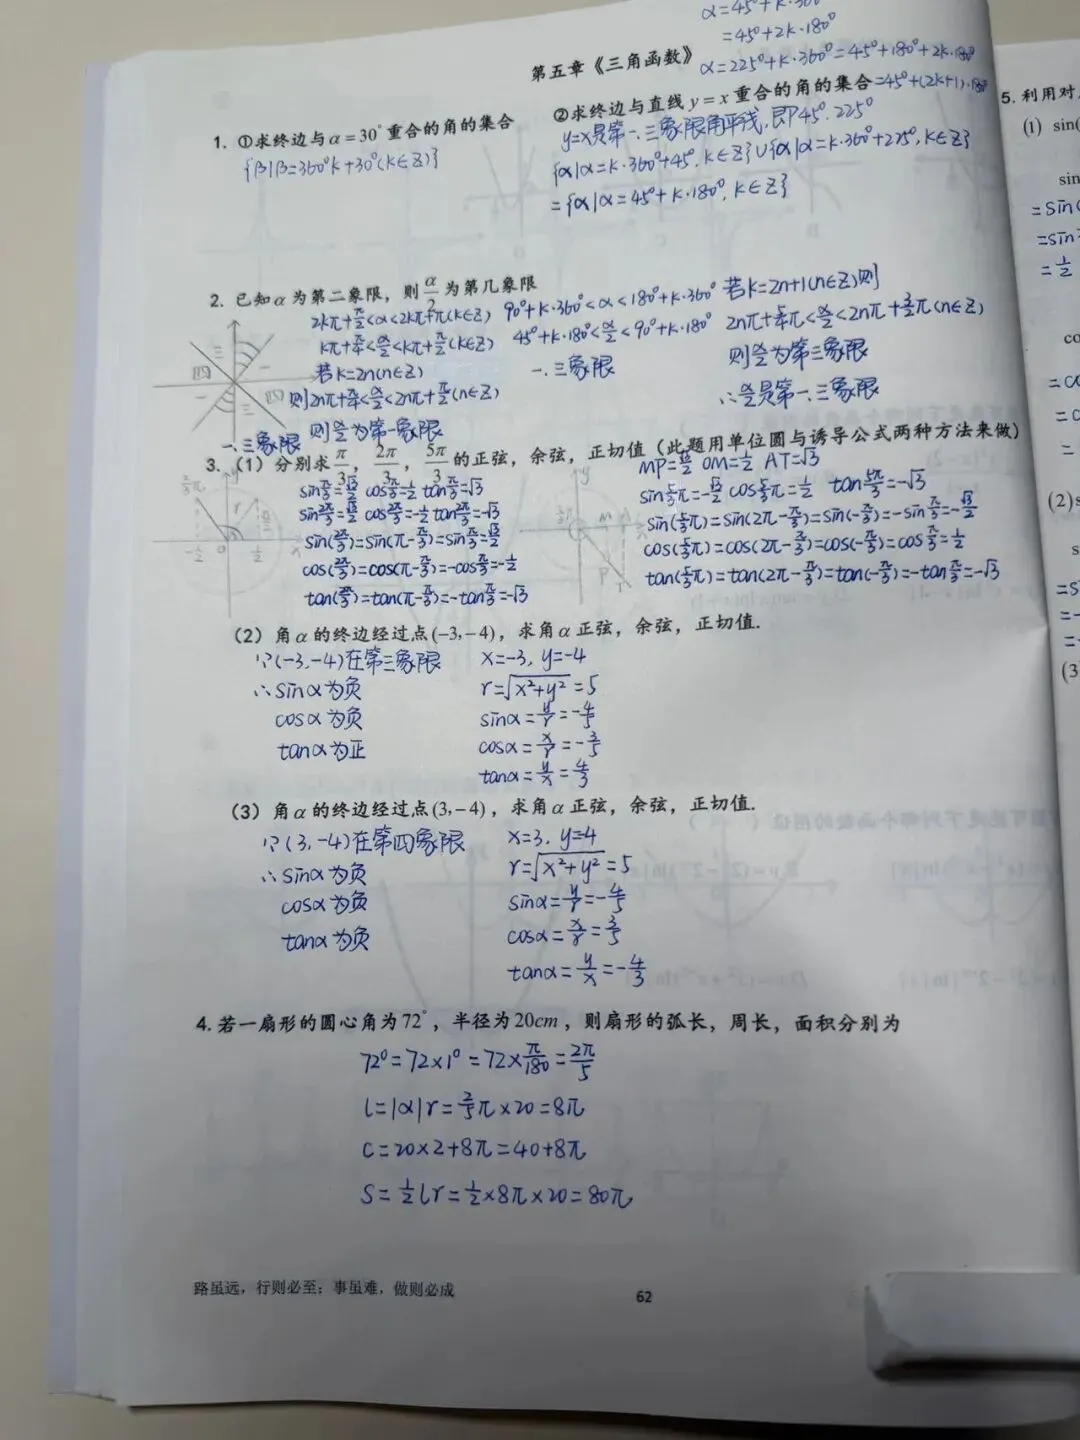 α=45°+k·360°
=45°+2k·180°
第五章《三角函数》
α=225°+k·360°=45°+180°+2k·180°
=45°+(2k+1)·180°
1. ①求终边与α=30°重合的角的集合
{β|β=360°k+30°(k∈Z)}
②求终边与直线 y=x 重合的角的集合
y=x是第一、三象限角平线,即45°.225°
{α|α=k·360°+45°, k∈Z}∪{α|α=k·360°+225°, k∈Z}
={α|α=45°+k·180°, k∈Z}
2. 已知α为第二象限，则α/2为第几象限
2kπ+π/2<α<2kπ+π(k∈Z)
kπ+π/4<α/2<kπ+π/2(k∈Z)
若k=2n(n∈Z)
则2nπ+π/4<α/2<2nπ+π/2(n∈Z)
则α/2为第一象限
一、三象限
90°+k·360°<α<180°+k·360°
45°+k·180°<α/2<90°+k·180°
一、三象限
若k=2n+1(n∈Z)则
2nπ+5/4π<α/2<2nπ+3/2π(n∈Z)
则α/2为第三象限
∴α/2是第一、三象限
3. （1）分别求π/3，2π/3，5π/3的正弦，余弦，正切值（此题用单位圆与诱导公式两种方法来做）
sinπ/3=√3/2 cosπ/3=1/2 tanπ/3=√3
sin2π/3=√3/2 cos2π/3=-1/2 tan2π/3=-√3
sin(2π/3)=sin(π-π/3)=sinπ/3=√3/2
cos(2π/3)=cos(π-π/3)=-cosπ/3=-1/2
tan(2π/3)=tan(π-π/3)=-tanπ/3=-√3
MP=√3/2 OM=1/2 AT=√3
sin5/3π=-√3/2 cos5/3π=1/2 tan5π/3=-√3
sin(5/3π)=sin(2π-π/3)=sin(-π/3)=-sinπ/3=-√3/2
cos(5/3π)=cos(2π-π/3)=cos(-π/3)=cosπ/3=1/2
tan(5/3π)=tan(2π-π/3)=tan(-π/3)=-tanπ/3=-√3
（2）角α的终边经过点(-3,-4)，求角α正弦，余弦，正切值.
∵(-3,-4)在第三象限
∴sinα为负
cosα为负
tanα为正
x=-3, y=-4
r=√x²+y²=5
sinα=y/r=-4/5
cosα=x/r=-3/5
tanα=y/x=4/3
（3）角α的终边经过点(3,-4)，求角α正弦，余弦，正切值.
∵(3,-4)在第四象限
∴sinα为负
cosα为负
tanα为负
x=3, y=4
r=√x²+y²=5
sinα=y/r=-4/5
cosα=x/r=3/5
tanα=y/x=-4/3
4. 若一扇形的圆心角为72°，半径为20cm，则扇形的弧长，周长，面积分别为
72°=72×1°=72×π/180=2π/5
l=|α|r=2/5π×20=8π
C=20×2+8π=40+8π
S=1/2lr=1/2×8π×20=80π
路虽远，行则必至；事虽难，做则必成
62
5. 利用对
(1) sin(
sin
=sin(
=1/2
(2)
(3